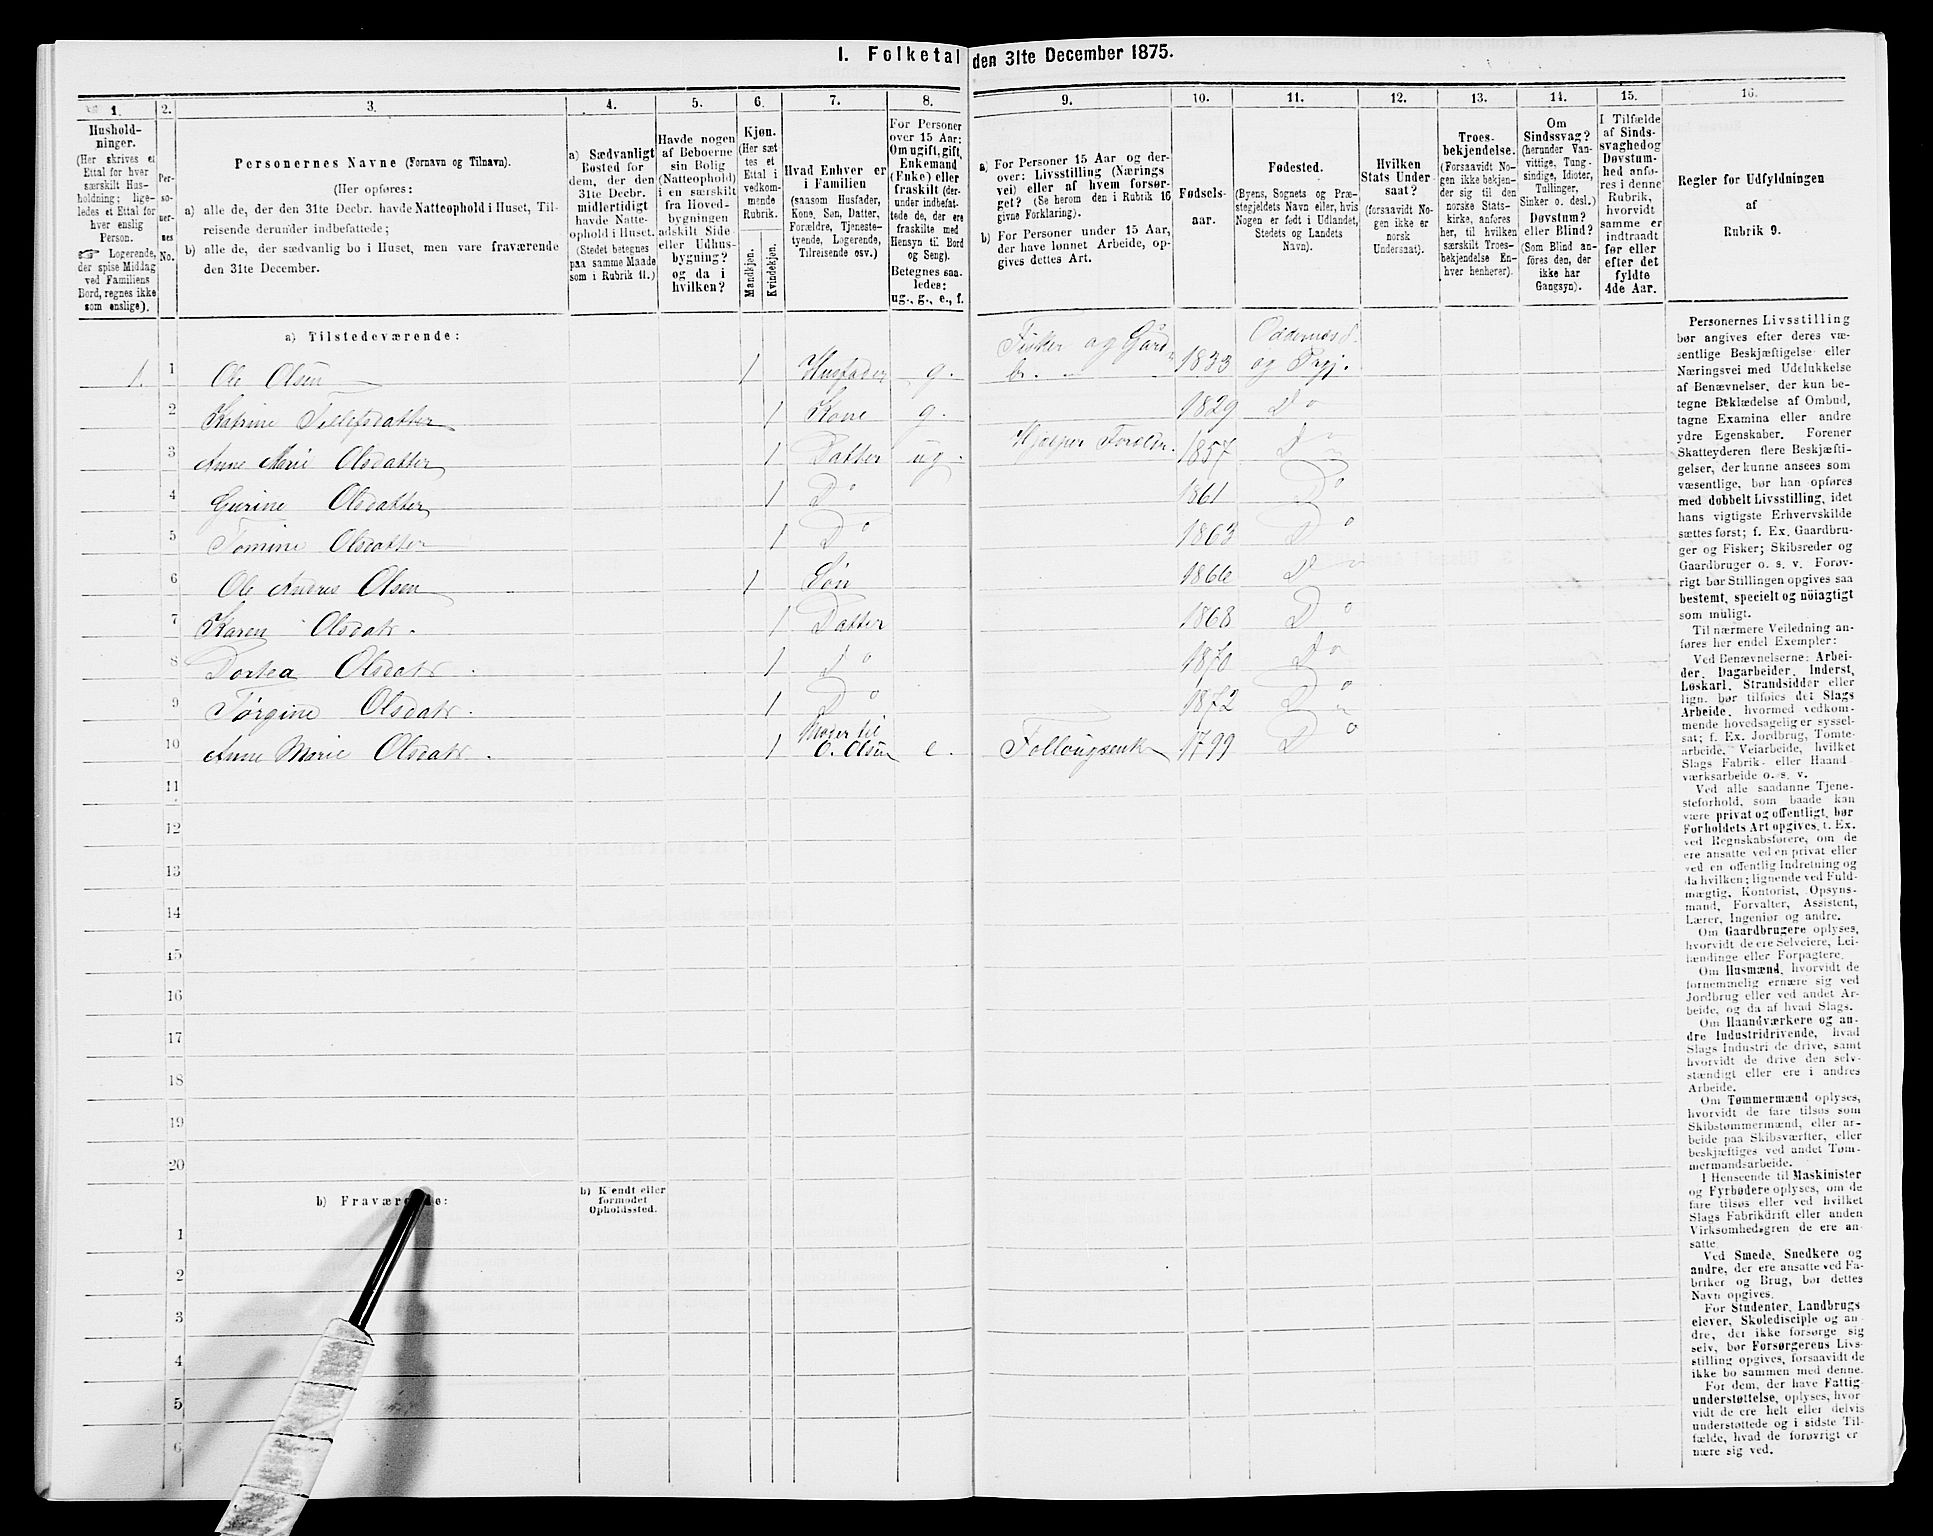 I. Folketal den 31te December 1875.
1. 2. 3. 4. 5. 6. 7. 8. 9. 10. 11. 12. 13. 14. 15. 16.
Hushold-
ninger.
(Her skrives et
Ettal for hver
særskilt Hus-
holdning; lige-
ledes et Ettal for
hver enslig
Person.
☞ Logerende,
der spise Middag
ved Familiens
Bord, regnes ikke
som enslige).
Per-
so-
ner-
nes
No.
Personernes Navne (Fornavn og Tilnavn).
(Her opføres:
a) alle de, der den 31te Decbr. havde Natteophold i Huset, Til-
reisende derunder indbefattede;
b) alle de, der sædvanlig bo i Huset, men vare fraværende
den 31te December.
a) Sædvanligt
Bosted for
dem, der den
31te Decbr.
midlertidigt
havde Natte-
ophold i Huset.
(Stedet betegnes
paa samme Maade
som i Rubrik 11.)
Havde nogen
af Beboerne
sin Bolig
(Natteophold)
i en særskilt
fra Hoved-
bygningen
adskilt Side-
eller Udhus-
bygning?
og da i
hvilken?
Kjøn.
(Her sæt-
tes et
Ettal i
vedkom-
mende
Rubrik.
Mandkjøn.
Kvindekjøn.
Hvad Enhver er
i Familien
(saasom Husfader,
Kone, Søn, Datter,
Forældre, Tjeneste-
tyende, Logerende,
Tilreisende osv.)
For Personer
over 15 Aar:
Om ugift, gift,
Enkemand
(Enke) eller
fraskilt (der-
under indbefat-
tede de, der ere
fraskilte med
Hensyn til Bord
og Seng).
Betegnes saa-
ledes:
ug., g., e., f.
a) For Personer 15 Aar og der-
over: Livsstilling (Nærings-
vei) eller af hvem forsør-
get? (Se herom den i Rubrik 16
givne Forklaring).
b) For Personer under 15 Aar,
der have lønnet Arbeide, op-
gives dettes Art.
Fødsels-
aar.
Fødested.
(Byens, Sognets og Præ-
stegjeldets Navn eller, hvis
Nogen er født i Udlandet,
Stedets og Landets
Navn).
Hvilken
Stats Under-
saat?
(forsaavidt No-
gen ikke er
norsk
Undersaat).
Troes-
bekjendelse.
(Forsaavidt No-
gen ikke bekjen-
der sig til den
norske Stats-
kirke, anføres
her, til hvilken
særskilt Troes-
bekjendelse En-
hver henhører).
Om
Sindssvag?
(herunder Van-
vittige, Tung-
sindige, Idioter,
Tullinger,
Sinker o. desl.)
Døvstum?
eller Blind?
(Som Blind an-
føres den, der
ikke har
Gangsyn).
I Tilfælde
af Sinds-
svaghed og
Døvstum-
hed anfø-
res i denne
Rubrik,
hvorvidt
samme er
indtraadt
før eller
efter det
fyldte
4de Aar.
Regler for Udfyldningen
af
Rubrik 9.
a) Tilstedeværende:
1. 1 Ole Olsen 1 Husfader g. Fisker og Gård- br. 1833 Oddernes S. og Prgj.
2 Katrine Tellefsdatter 1 Kone g. 1829 Do
3 Anne Marie Olsdatter 1 Datter ug. Hjælper Foræld. 1857 Do
4 Gurine Olsdatter 1 Do 1861 Do
5 Tomine Olsdatter 1 Do 1863 Do
6 Ole Andres Olsen 1 Søn 1866 Do
7 Karen Olsdatr. 1 Datter 1868 Do
8 Dortea Olsdatr. 1 Do 1870 Do
9 Tørgine Olsdatr. 1 Do 1872 Do
10 Anne Marie Olsdatr. 1 Moder til O. Olsen e. Føllougsenk 1799 Do
11
12
13
14
15
16
17
18
19
20
b) Fraværende:
b) Kjendt eller
formodet
Opholdssted.
1
2
3
4
5
6
Personernes Livsstilling
bør angives efter deres væ-
sentlige Beskjæftigelse eller
Næringsvei med Udelukkelse
af Benævnelser, der kun be-
tegne Beklædelse af Ombud,
tagne Examina eller andre
ydre Egenskaber. Forener
Skatteyderen flere Beskjæfti-
gelser, der kunne ansees som
væsentlige, bør han opføres
med dobbelt Livsstilling, idet
hans vigtigste Erhvervskilde
sættes først; f. Ex. Gaardbru-
ger og Fisker; Skibsreder og
Gaardbruger o. s. v. Forøv-
rigt bør Stillingen opgives saa
bestemt, specielt og nøiagtigt
som muligt.
Til nærmere Veiledning an-
føres her endel Exempler:
Ved Benævnelserne: Arbei-
der, Dagarbeider, Inderst,
Løskarl, Strandsidder eller
lign. bør tilføies det Slags
Arbeide, hvormed vedkom-
mende hovedsagelig er syssel-
sat; f. Ex. Jordbrug, Tomte-
arbeide, Veiarbeide, hvilket
Slags Fabrik- eller Haand-
værksarbeide o. s. v.
Ved alle saadanne Tjene-
steforhold, som baade kan
være privat og offentligt, bør
Forholdets Art opgives, f. Ex.
ved Regnskabsførere, om de
ere ansatte ved en privat eller
ved en offentlig Indretning og
da hvilken; lignende ved Fuld-
mægtig, Kontorist, Opsyns-
mand, Forvalter, Assistent,
Lærer, Ingeniør og andre.
Om Gaardbrugere oplyses,
hvorvidt de ere Selveiere, Lei-
lændinge eller Forpagtere.
Om Husmænd, hvorvidt de
fornemmelig ernære sig ved
Jordbrug eller ved andet Ar-
beide, og da af hvad Slags.
Om Haandværkere og an-
dre Industridrivende, hvad
Slags Industri de drive, samt
hvorvidt de drive den selv-
stændigt eller ere i andres
Arbeide.
Om Tømmermænd oplyses,
hvorvidt de fare tilsøs som
Skibstømmermænd, eller ar-
beide paa Skibsværfter, eller
beskjæftiges ved andet Tøm-
mermandsarbeide.
I Henseende til Maskinister
og Fyrbødere oplyses, om de
fare tilsøs eller ved hvilket
Slags Fabrikdrift eller anden
Virksomhedsgren de ere an-
satte.
Ved Smede, Snedkere og
andre, der ere ansatte ved Fa-
briker og Brug, bør dettes
Navn opgives.
For Studenter, Landbrugs-
elever, Skoledisciple og an-
dre, der ikke forsørge sig
selv, bør Forsørgerens Livs-
stilling opgives, forsaavidt de
ikke bo sammen med denne.
For dem, der have Fattig-
understøttelse, oplyses, hvor-
vidt de ere helt eller delvis
understøttede og i sidste Til-
fælde, hvad de forøvrigt er-
nære sig ved.